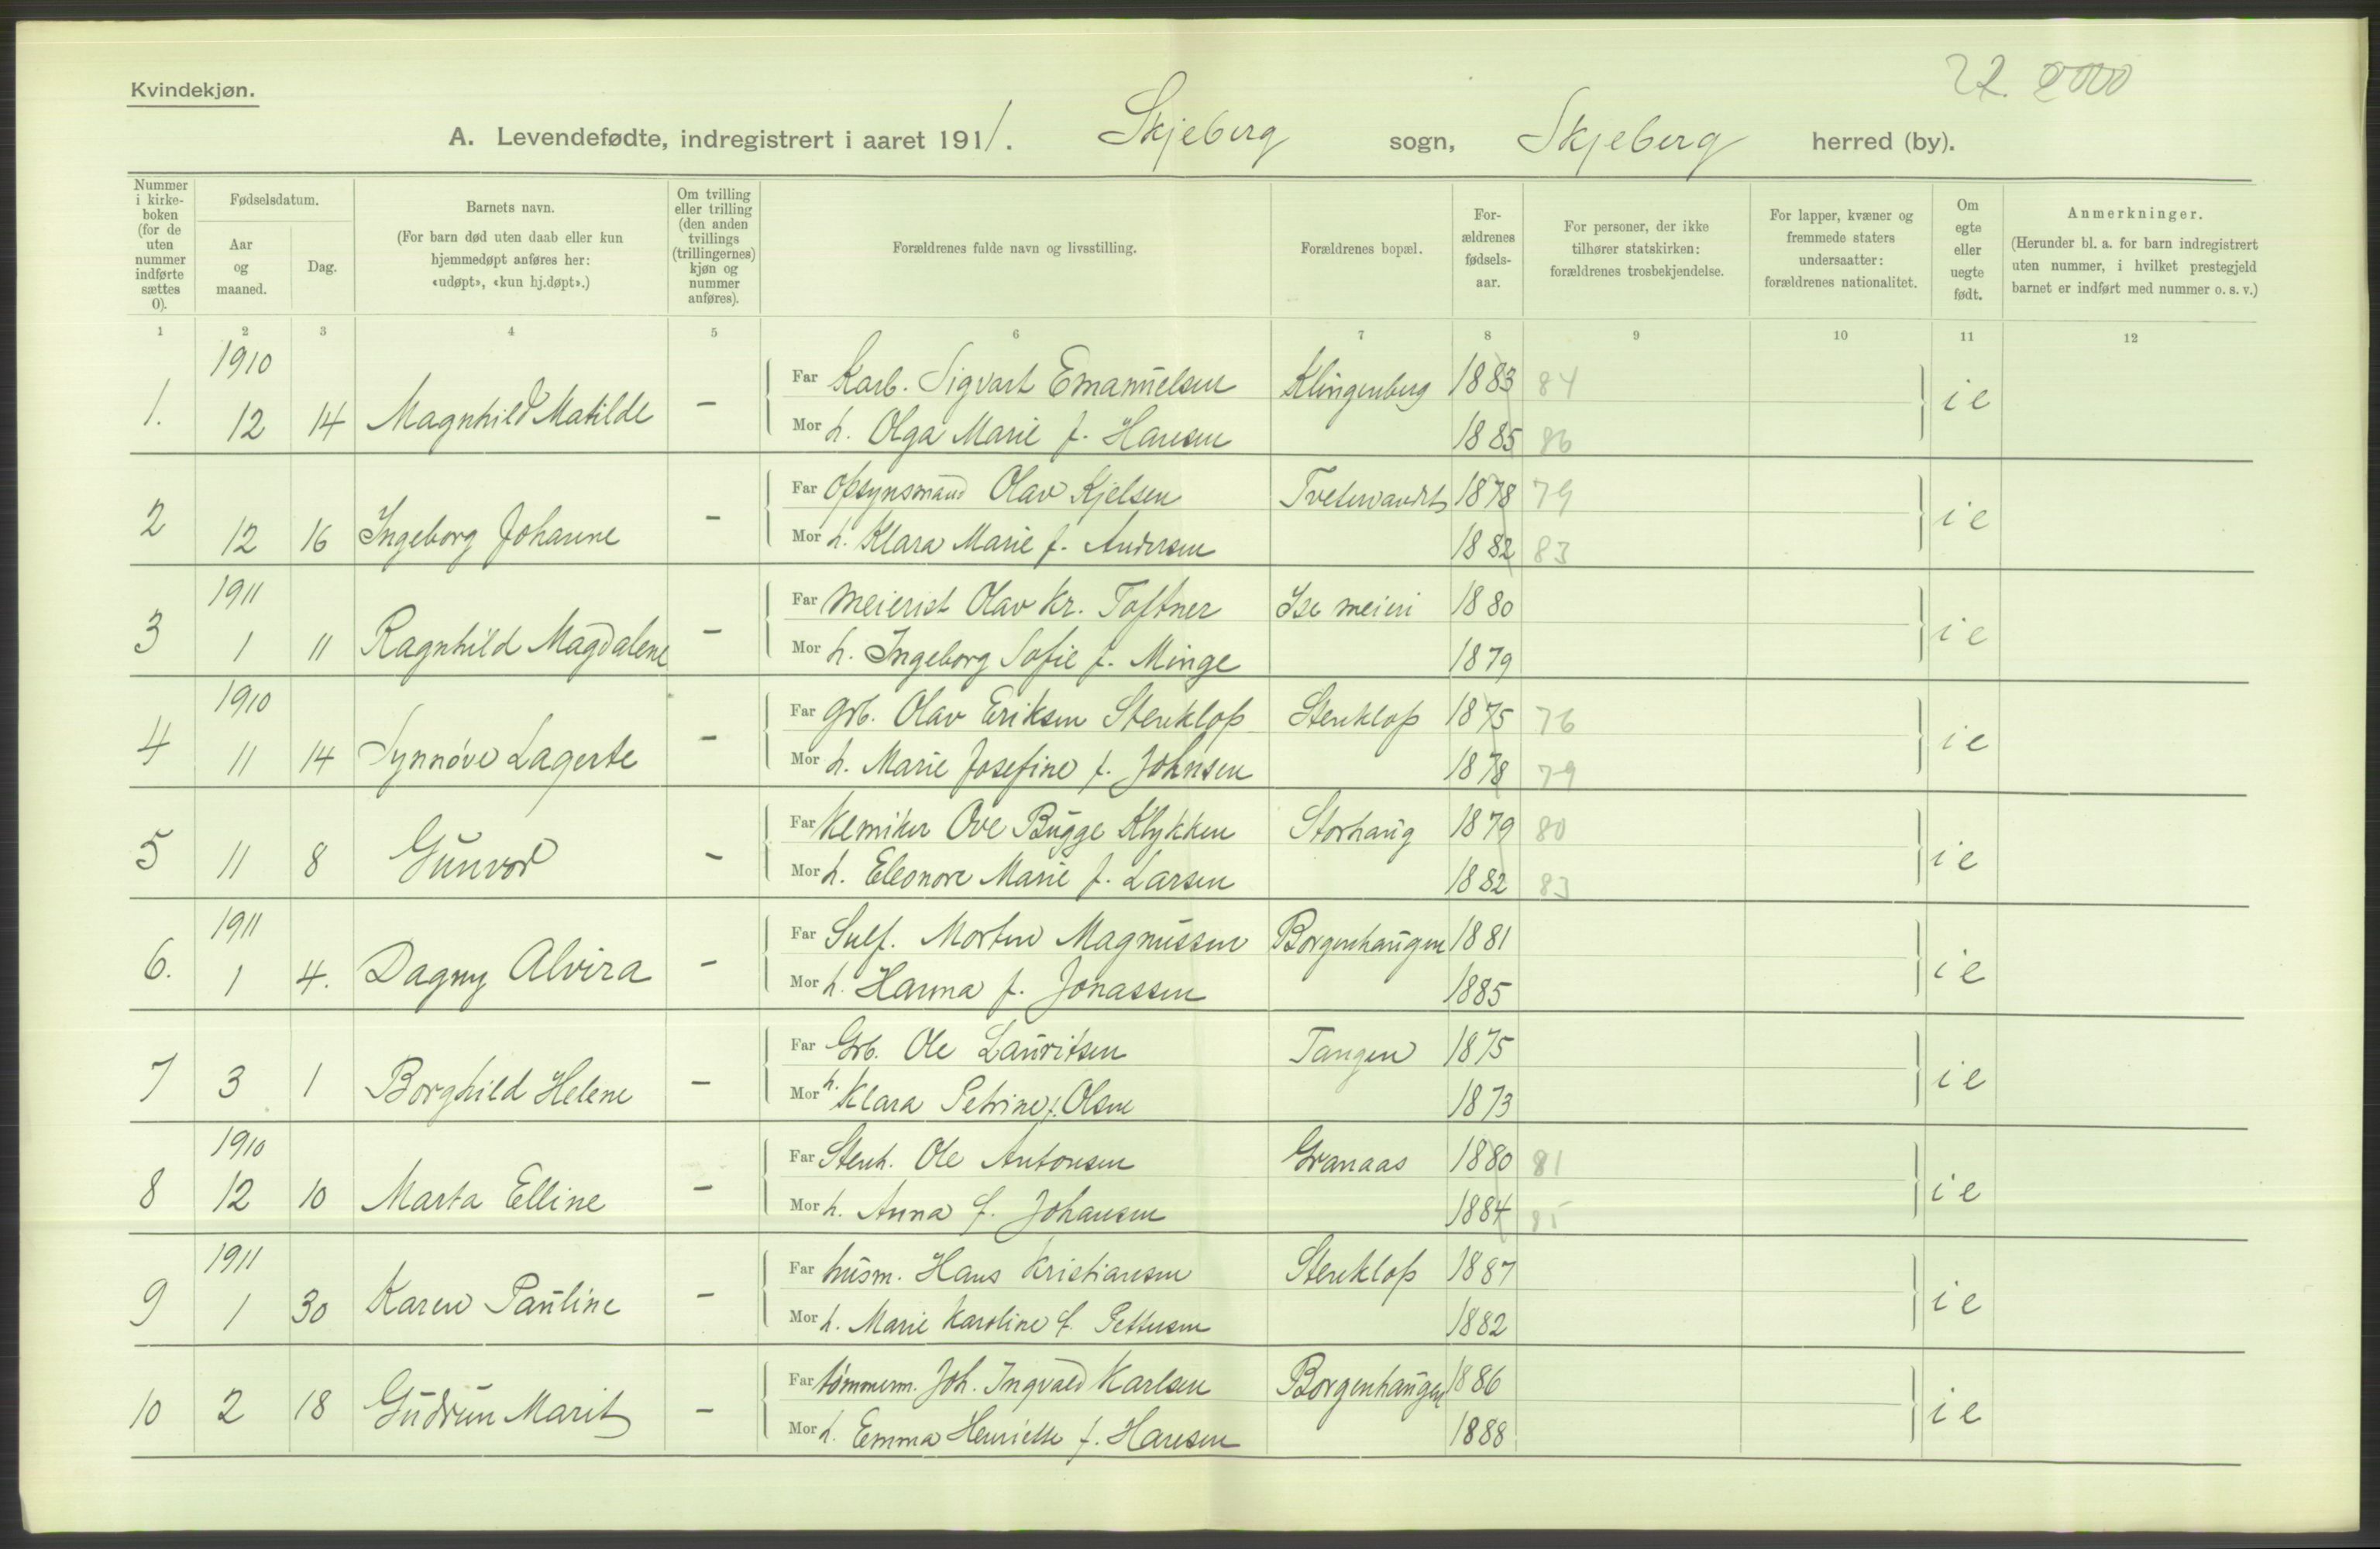 Kvindekjøn.
22
A. Levendefødte, indregistrert i aaret 1911. Skjeberg sogn, Skjeberg herred (by).
Nummer i kirke-boken (for de uten nummer indførte sættes 0).
Fødselsdatum.
Aar og maaned.
Dag.
Barnets navn.
(For barn død uten daab eller kun hjemmedøpt anføres her: «udøpt», «kun hj.døpt».)
Om tvilling eller trilling (den anden tvillings (trillingernes) kjøn og nummer anføres).
Forældrenes fulde navn og livsstilling.
Forældrenes bopæl.
For-ældrenes fødsels-aar.
For personer, der ikke tilhører statskirken: forældrenes trosbekjendelse.
For lapper, kvæner og fremmede staters undersaatter: forældrenes nationalitet.
Om egte eller uegte født.
Anmerkninger.
(Herunder bl. a. for barn indregistrert uten nummer, i hvilket prestegjeld barnet er indført med nummer o. s. v.)
1 2 3 4 5 6 7 8 9 10 11 12
1910
1. 12 14 Magnhild Matilde - Far Karb. Sigvart Emanuelsen Klingenberg 1883 84 i e
Mor h. Olga Marie f. Hansen 1885 86
2 12 16 Ingeborg Johanne - Far Opsynsmand Olav Kjelsen 1878 79 i e
Mor h. Klara Marie f. Andersen 1882 83
1911
3 1 11 Ragnhild Magdalene - Far Meierist Olav Kr. Toftner Ise meieri 1880 i e
Mor h. Ingeborg Sofie f. Minge 1879
1910
4 11 14 Synnøve Lagerte - Far Grb. Olav Eriksen Stenklop Stenklop 1875 76 i e
Mor h. Marie Josefine f. Johnsen 1878 79
5 11 8 Gunvor - Far Kemiker Ove Bugge Klykken Storhaug 1879 80 i e
Mor h. Eleonore Marie f. Larsen 1882 83
1911
6. 1 4. Dagny Alvira - Far Sulf. Morten Magnussen Borgenhaugen 1881 i e
Mor h. Hanna f. Jonassen 1885
7 3 1 Borghild Helene - Far Grb. Ole Lauritsen Tangen 1875 i e
Mor h. Klara Petrine f. Olsen 1873
1910
8 12 10 Marta Elline - Far Stenh. Ole Antonsen Granaas 1880 81 i e
Mor h. Anna f. Johansen 1884 85
1911
9 1 30 Karen Pauline - Far husm. Hans Kristiansen Stenklop 1887 i e
Mor h. Marie Karoline f. Pettersen 1882
10 2 18 Gudrun Marit - Far tømmerm. Joh. Ingvald Karlsen Borgenhaugen 1886 i e
Mor h. Emma Henriette f. Hansen 1888